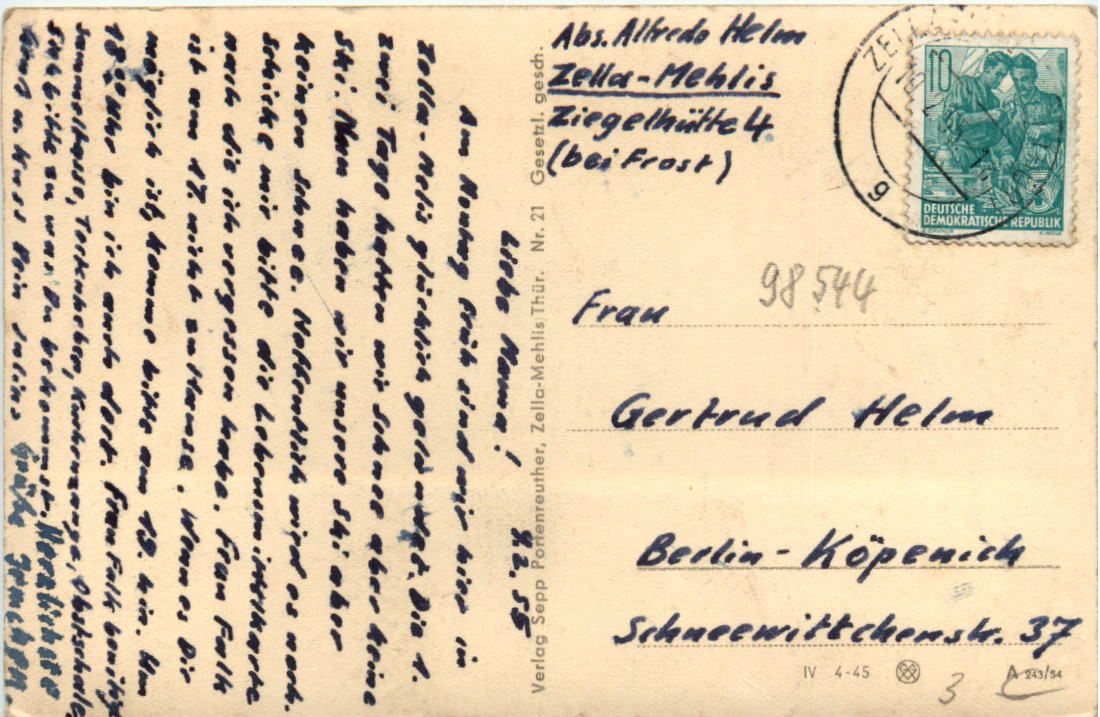 Abs. Alfredo Helm
Zella-Mehlis
Ziegelhütte 4
(bei Frost)
10
DEUTSCHE
DEMOKRATISCHE REPUBLIK
g
98544
Frau
Gertrud Helm
Berlin-Köpenick
Schneewittchenstr. 37
IV 4-45
A 243/54
3
Verlag Sepp Portenreuther, Zella-Mehlis/Thür. Nr. 21 Gesetzl. gesch.
Liebe Mama! 9.2.55
Am Montag früh sind wir hier in
Zella-Melis glücklich gelandet. Die 1.
zwei Tage hatten wir Schnee aber keine
Ski. Nun haben wir unsere Ski aber
keinen Schnee. Hoffentlich wird es noch.
schicke mir bitte die Lebensmittelkarte
nach die ich vergessen habe. Frau Falk
ist am 17. nicht zu Hause. Wenn es Dir
möglich ist, komme bitte am 19. hin. Um
18°° Uhr bin ich auch dort. Frau Falk benötigt
Sammeltasse, Kuchenzange, Obstschale
Sieh bitte zu was Du bekommst. Herzlichere
Gruß u. Kuss Dein
Grüße